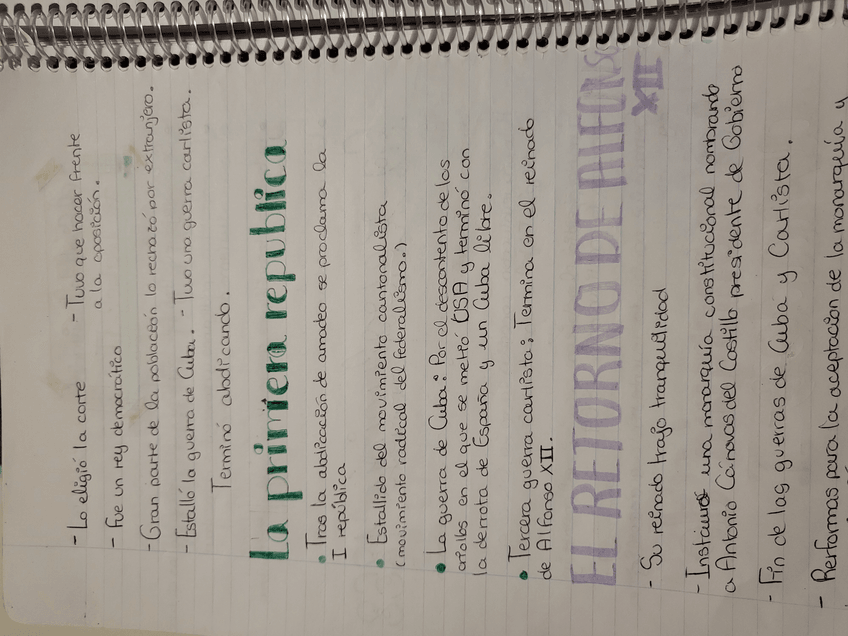 - Lo eligió la corte - Tuvo que hacer frente
a la oposición.
- Fue un rey democrático
- Gran parte de la población lo rechazó por extranjero.
- Estalló la guerra de Cuba. - Tuvo una guerra carlista.
Terminó abdicando.
La primera republica
• Tras la abdicación de amadeo se proclama la
I república
• Estallido del movimiento cantonalista
(movimiento radical del federalismo.)
• La guerra de Cuba: Por el descontento de los
criollos en el que se metió USA y terminó con
la derrota de España y un Cuba libre.
• Tercera guerra carlista: Termina en el reinado
de Alfonso XII.
EL RETORNO DE ALFONSO
XII
- Su reinado trajo tranquilidad
- Instauró una monarquía constitucional nombrando
a Antonio Cánovas del Castillo presidente de Gobierno
- Fin de las guerras de Cuba y Carlista.
- Reformas para la aceptación de la monarquía y